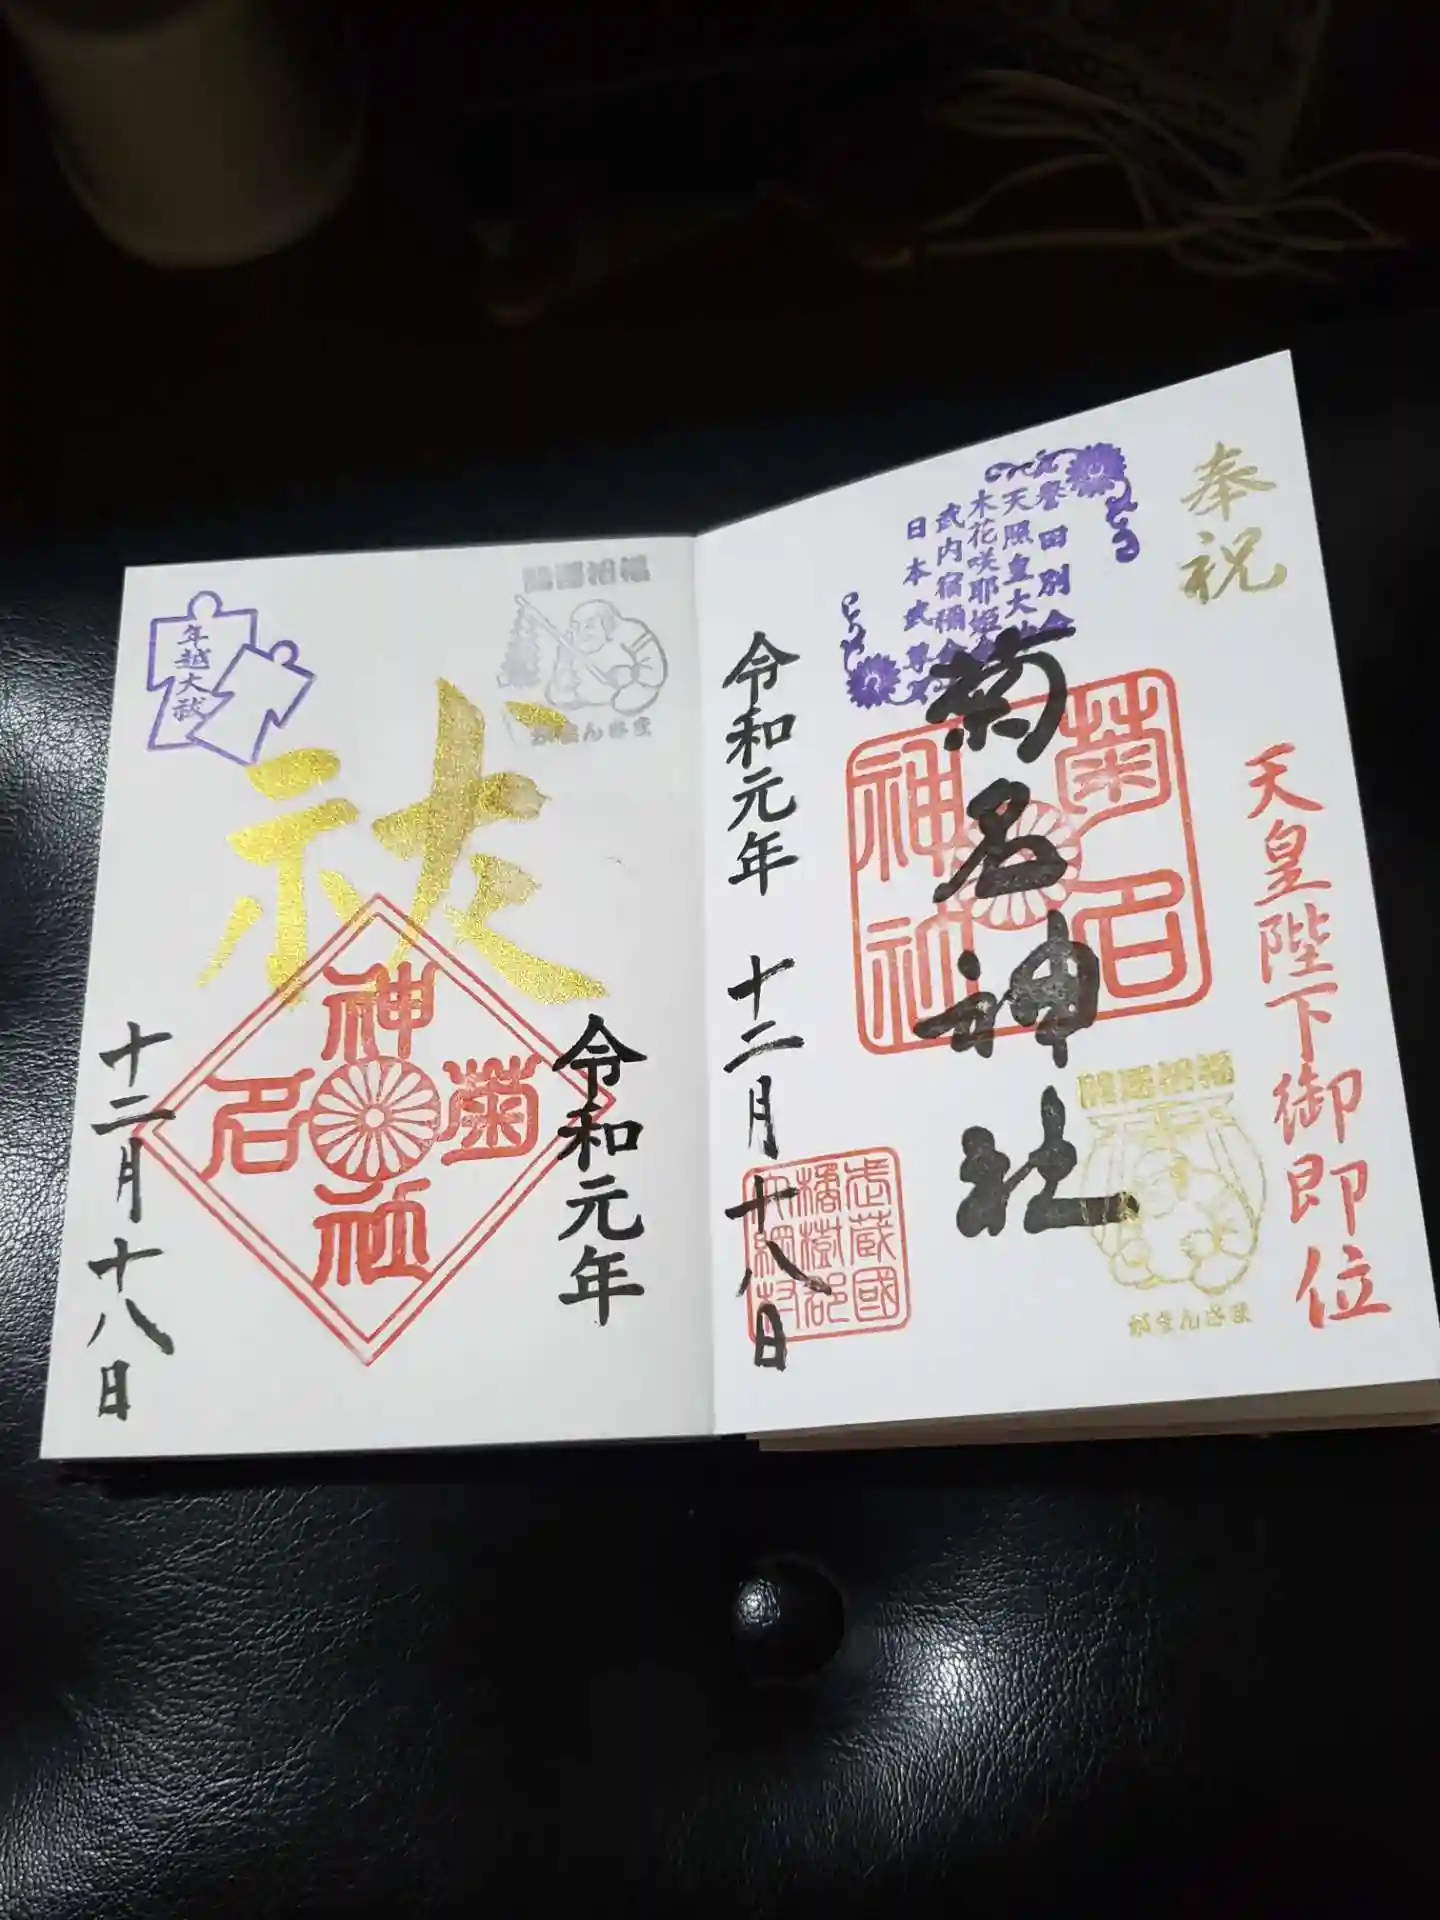 奉祝
天皇陛下御即位
誉田別命
天照皇大神
木花咲耶姫命
武内宿禰命
日本武尊
菊名神社
菊名
神社
開運招福
がまんさま
武蔵國
橘樹郡
大綱村
令和元年 十二月十八日
開運招福
がまんさま
年越大祓
祓
神
菊
名
社
令和元年
十二月十八日